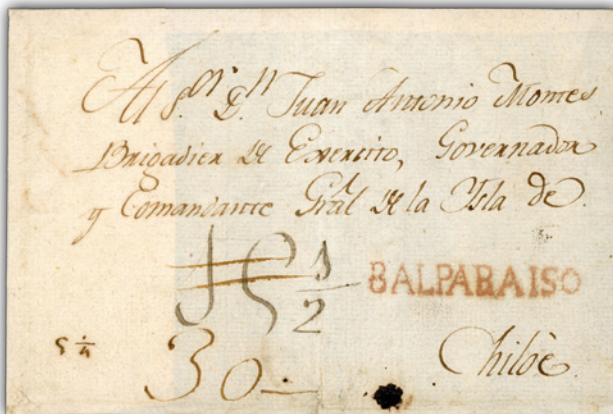 Al S.ᵒʳ D.ⁿ Juan Antonio Montes
Brigadier de Exercito, Governador
y Comandante Gral de la Isla de
1/2 BALPARAISO
30
Chilòe